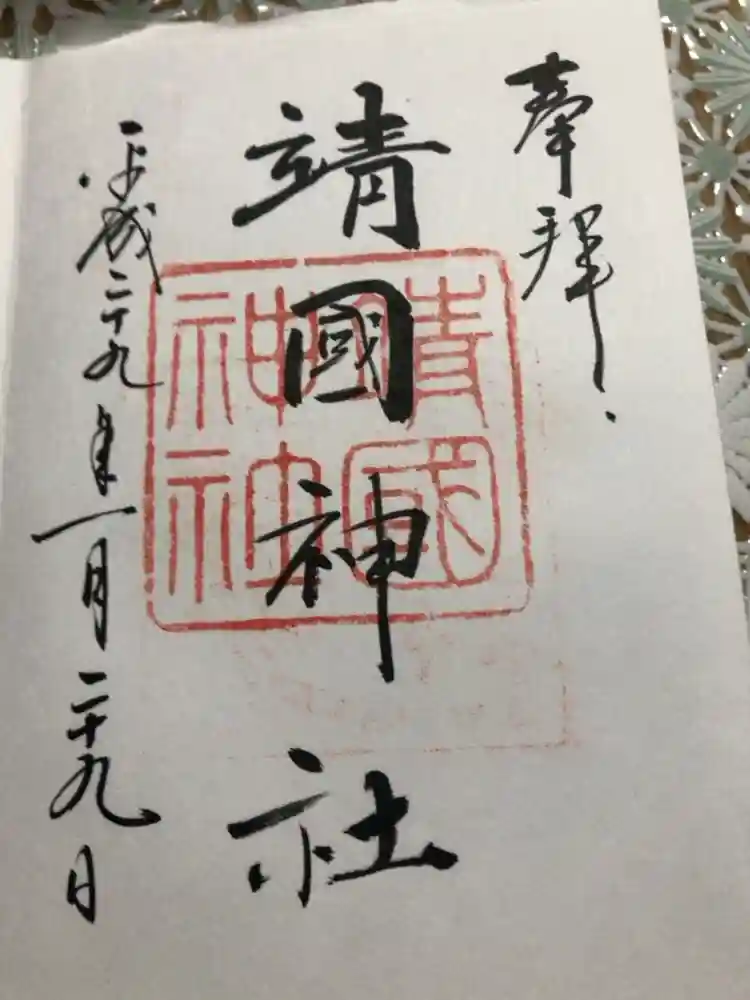 奉拝
靖國神社
平成二十九年一月二十九日
靖國
神社